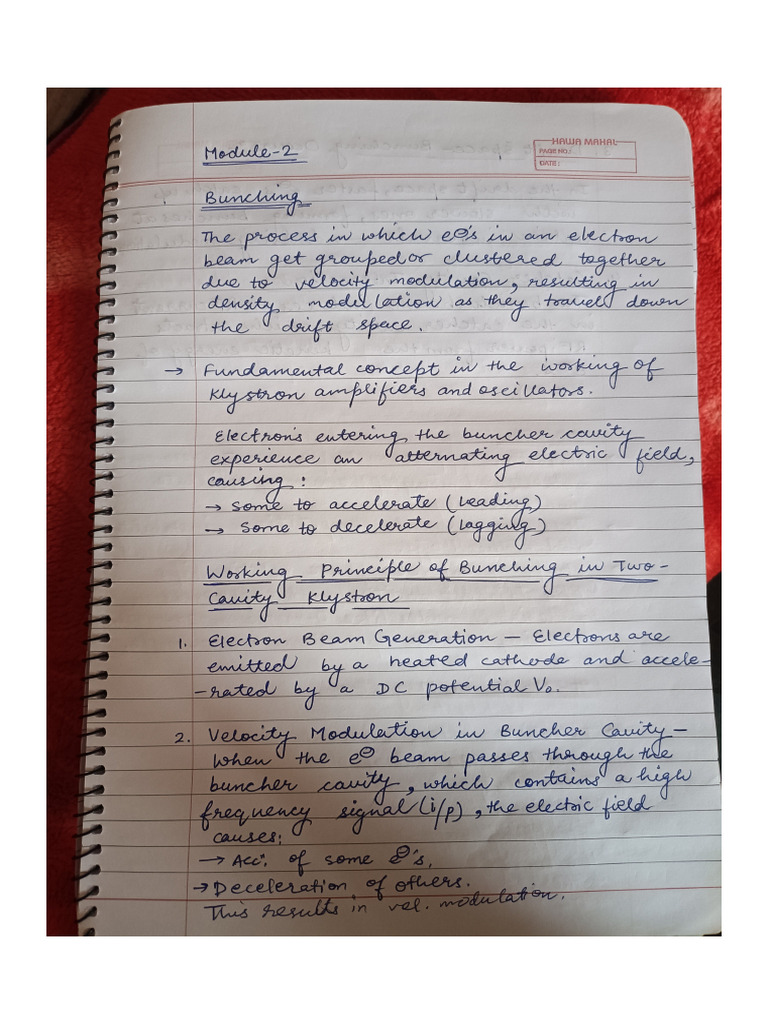 Module-2
HAWA MAHAL
PAGE NO.:
DATE:
Bunching
The process in which e⊖'s in an electron
beam get grouped or clustered together
due to velocity modulation, resulting in
density modulation as they travel down
the drift space.
→ Fundamental concept in the working of
Klystron amplifiers and oscillators.
Electron's entering the buncher cavity
experience an alternating electric field,
causing:
→ some to accelerate (leading)
→ some to decelerate (lagging)
Working Principle of Bunching in Two-
Cavity Klystron
1. Electron Beam Generation – Electrons are
emitted by a heated cathode and accele-
-rated by a DC potential V₀.
2. Velocity Modulation in Buncher Cavity –
When the e⊖ beam passes through the
buncher cavity, which contains a high
frequency signal (i/p), the electric field
causes:
→ Accⁿ. of some e⊖'s,
→ Deceleration of others.
This results in vel. modulation.